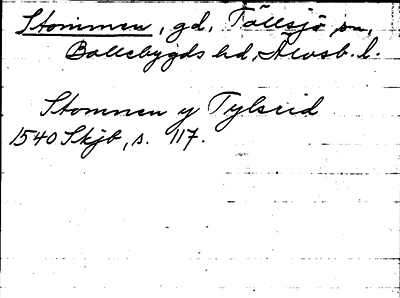 Stommen, gd, Töllsjö sn,
Bollebygds hd, Älvsb. l.
Stomnen y Tylseid
1540 Skjb, s. 117.